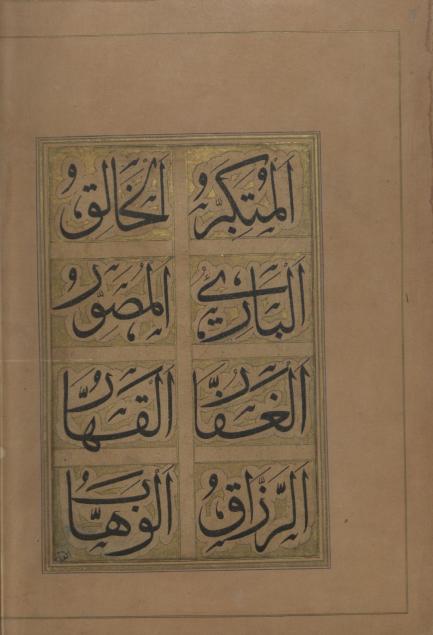 اَلْمُتَكَبِّرُ اَلْخَالِقُ
اَلْبَارِئُ اَلْمُصَوِّرُ
اَلْغَفَّارُ اَلْقَهَّارُ
اَلرَّزَّاقُ اَلْوَهَّابُ